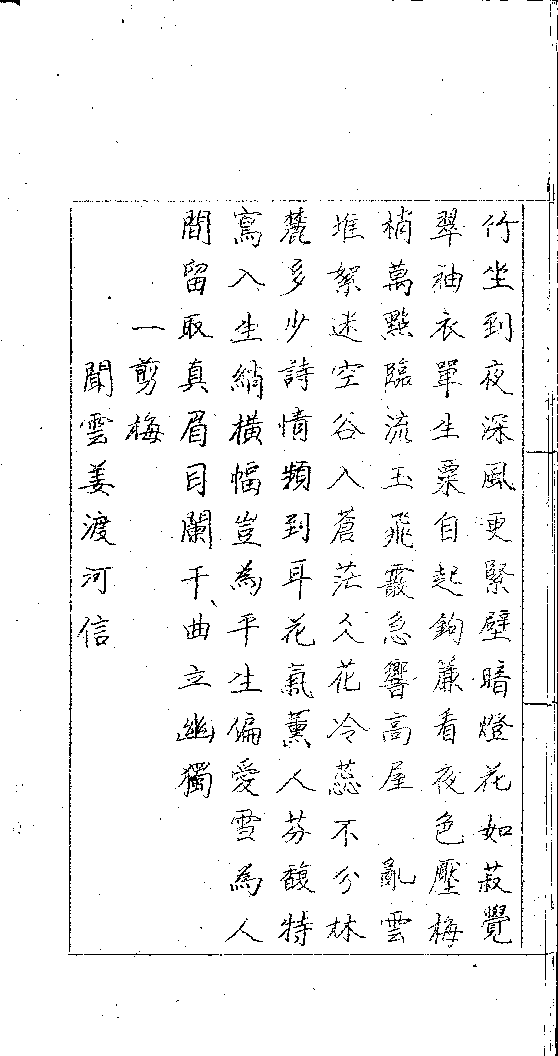 竹坐到夜深風更緊壁暗燈花如菽覺
翠袖衣單生粟自起鉤簾看夜色壓梅
梢萬點臨流玉飛霰急響高屋　亂雲
堆絮迷空谷入蒼茫久花冷蕊不分林
麓多少詩情頻到耳花氣薰人芬馥特
寫入生綃橫幅豈為平生偏愛雪為人
間留取真眉目闌干曲立幽獨
一剪梅
聞雲姜渡河信